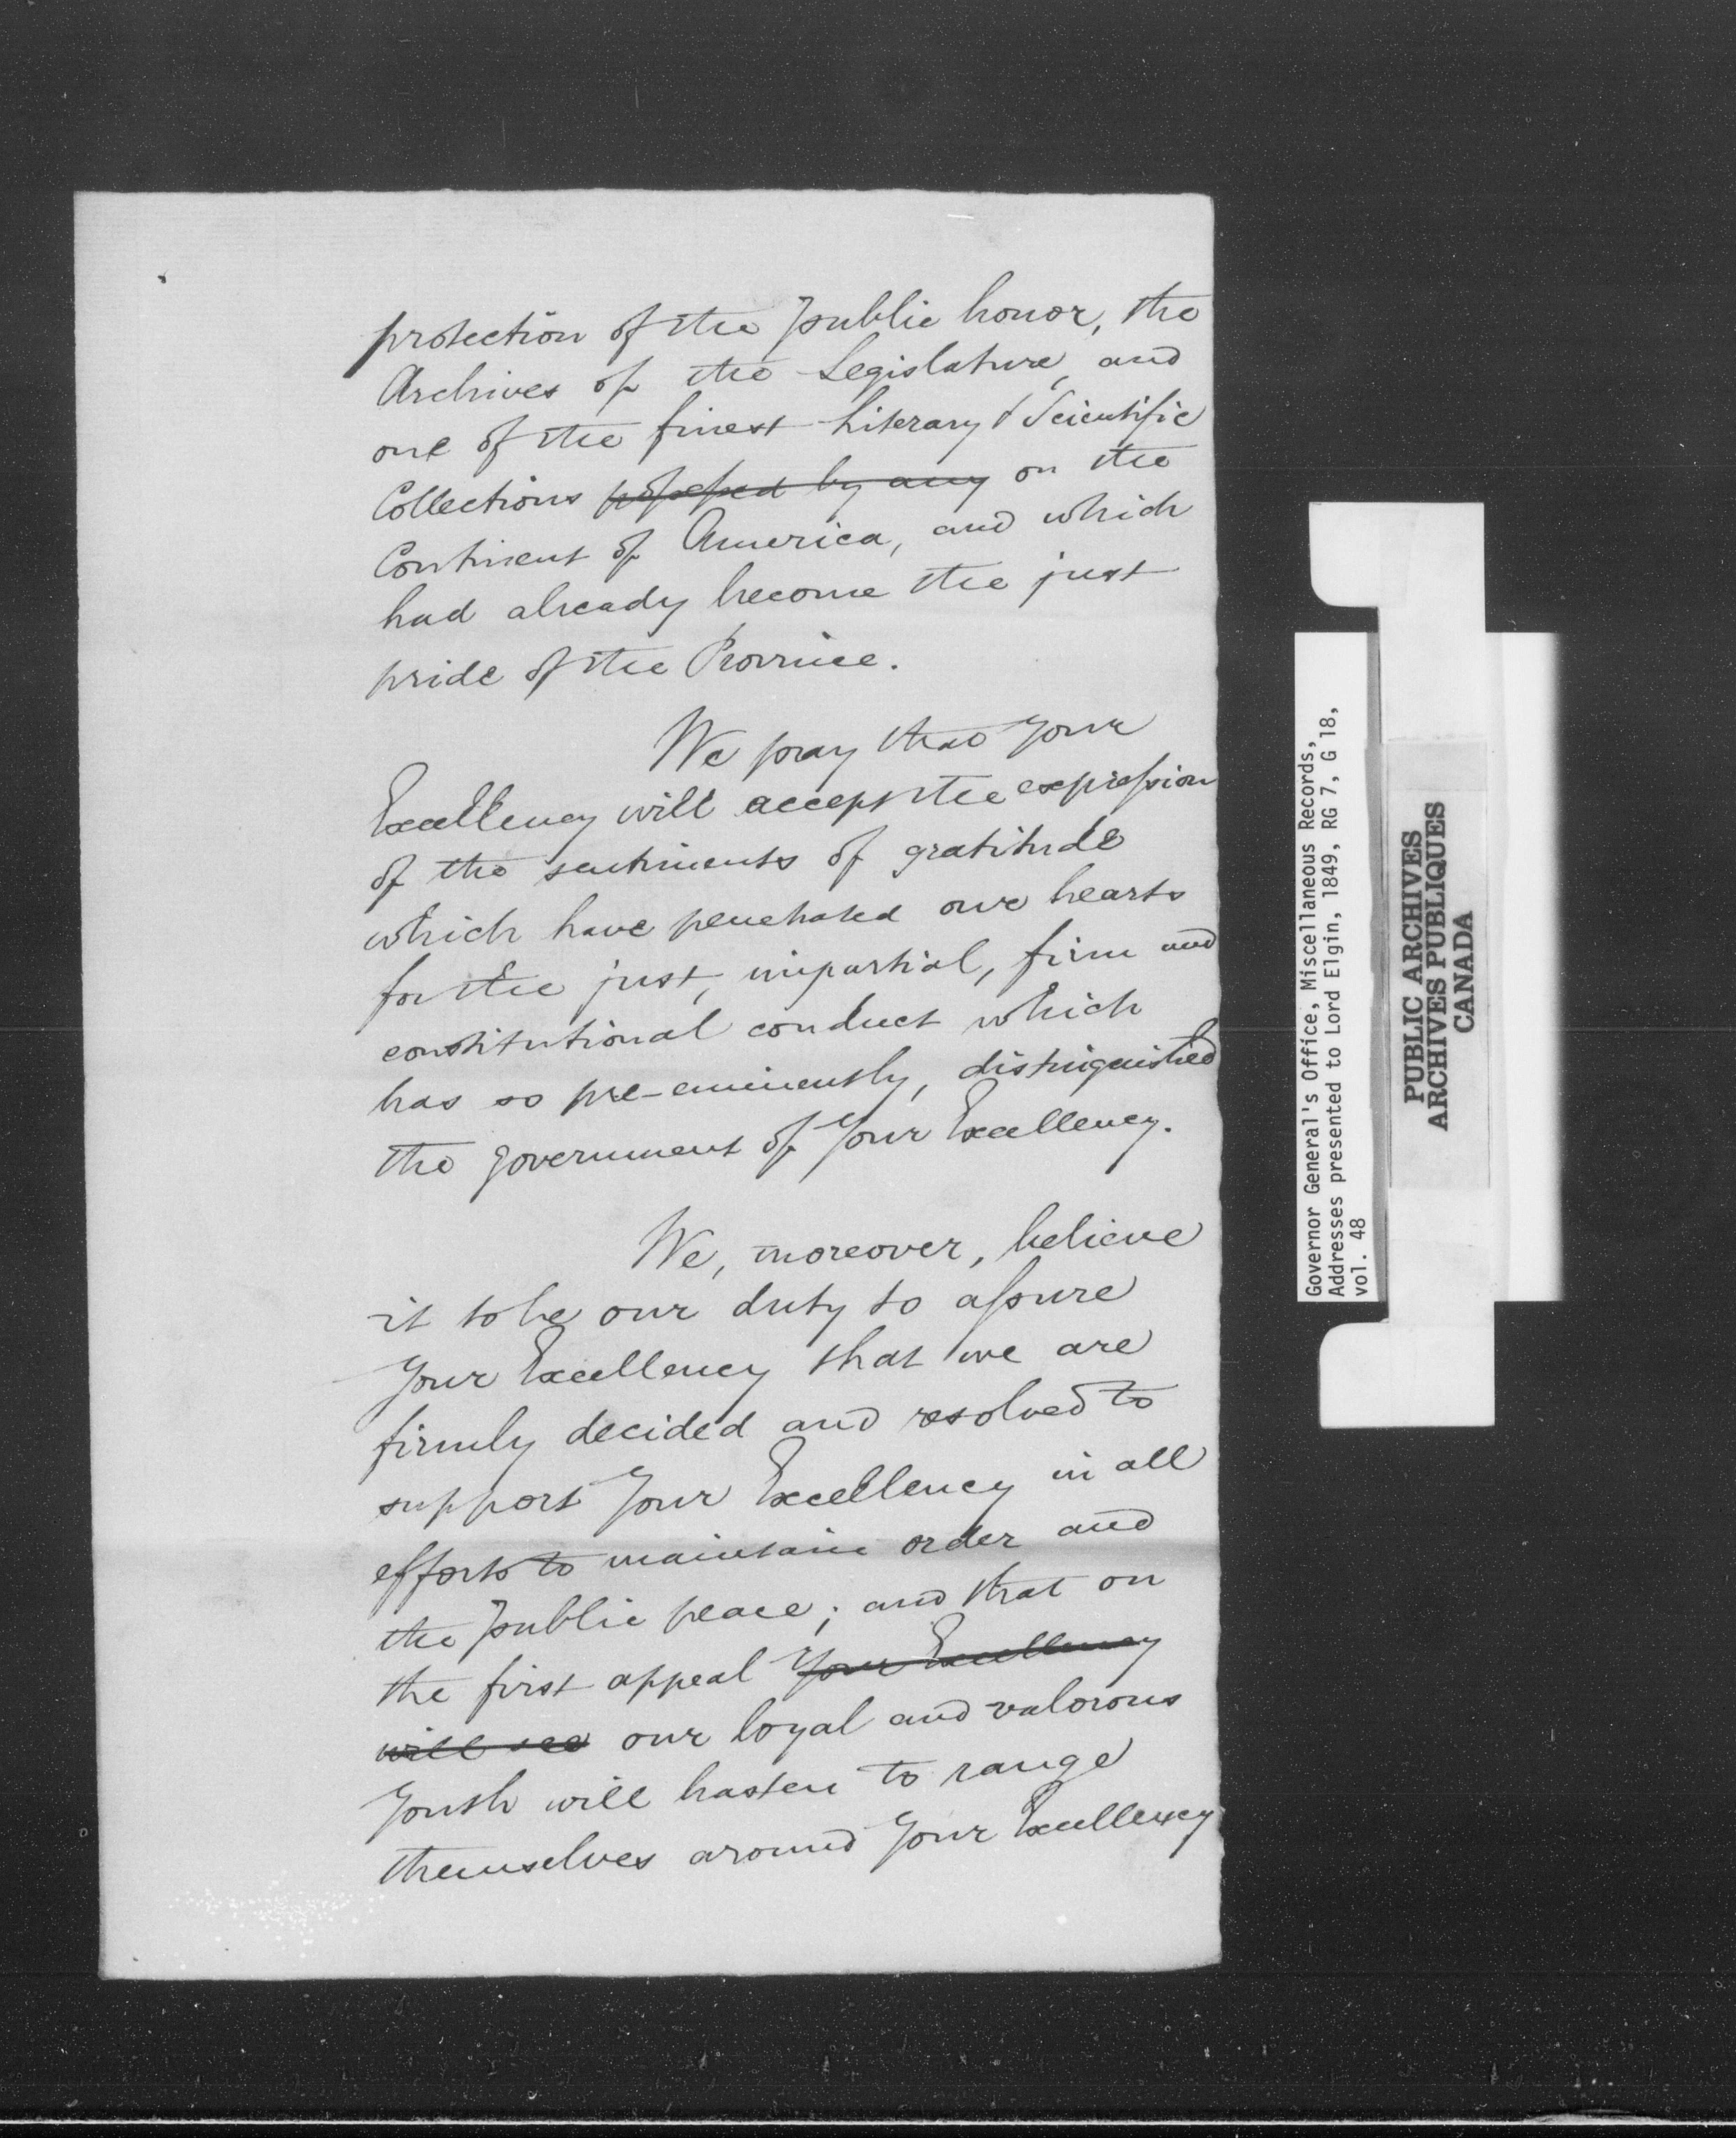 protection of the public honor, the
Archives of the Legislature, and
one of the finest Literary & Scientific
Collections possessed by any on the
Continent of America, and which
had already become the just
pride of the Province.
We pray that Your
Excellency will accept the expression
of the sentiments of gratitude
which have penetrated our hearts
for the just, impartial, firm and
constitutional conduct which
has so pre-eminently, distinguished
the government of Your Excellency.
We, moreover, believe
it to be our duty to assure
Your Excellency that we are
firmly decided and resolved to
support Your Excellency in all
efforts to maintain order and
the public peace; and that on
the first appeal Your Excellency
will see our loyal and valorous
Youth will hasten to range
themselves around Your Excellency
Governor General's Office, Miscellaneous Records,
Addresses presented to Lord Elgin, 1849, RG 7, G 18,
vol. 48
PUBLIC ARCHIVES
ARCHIVES PUBLIQUES
CANADA